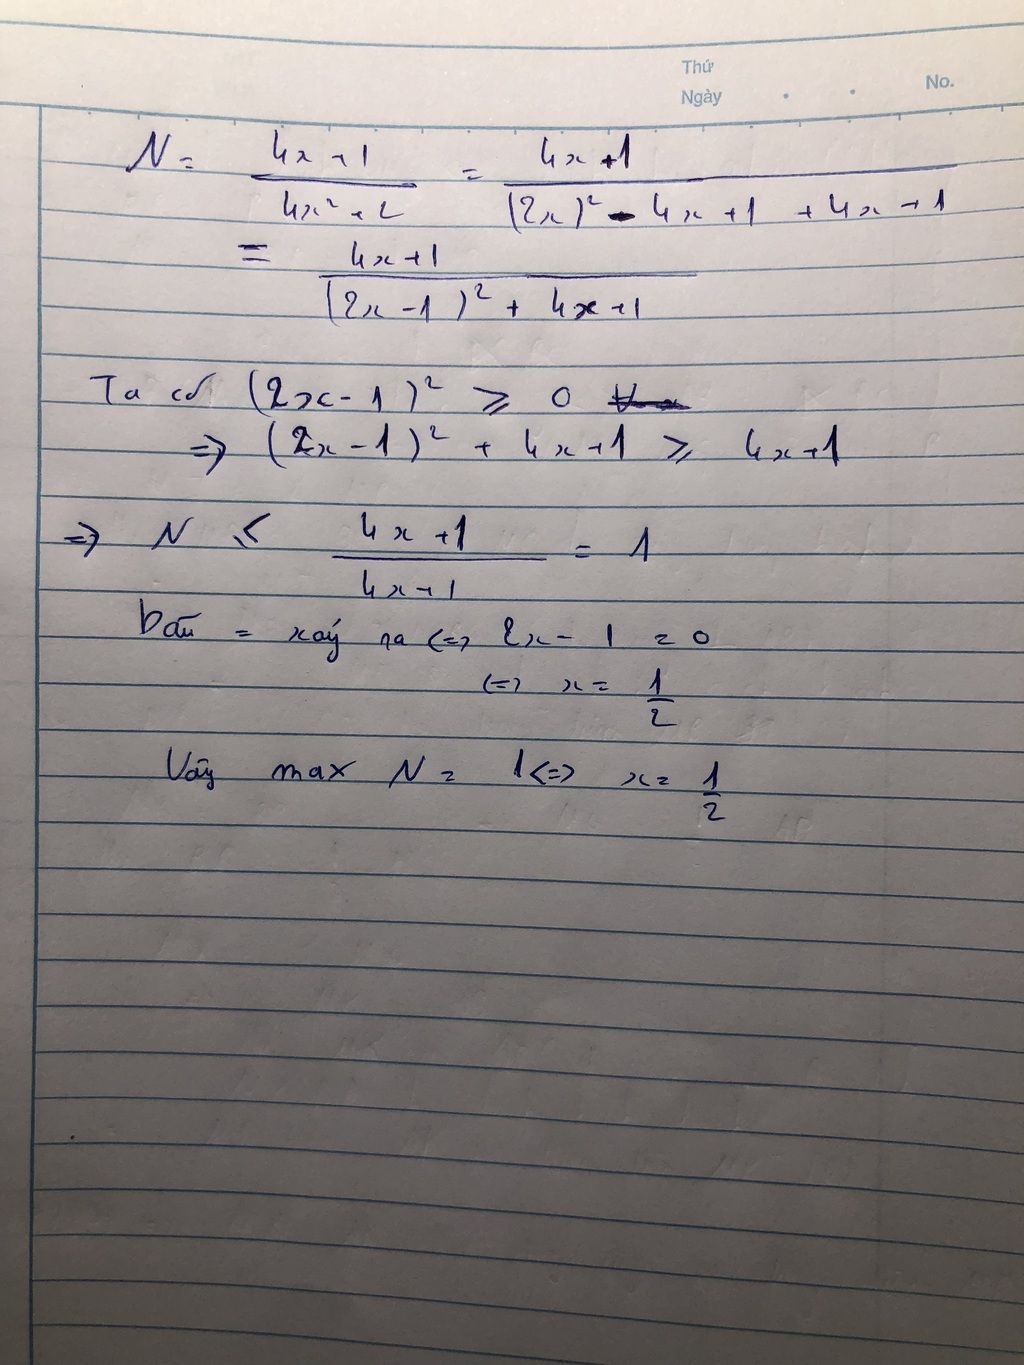 Thứ
Ngày . . No.
N = (4x+1)/(4x²+2) = (4x+1)/((2x)² - 4x+1 +4x+1)
= (4x+1)/((2x-1)² + 4x+1)
Ta có (2x-1)² ⩾ 0
=> (2x-1)² + 4x+1 ⩾ 4x+1
=> N ⩽ (4x+1)/(4x+1) = 1
Dấu = xảy ra <=> 2x-1 = 0
<=> x = 1/2
Vậy max N = 1 <=> x = 1/2